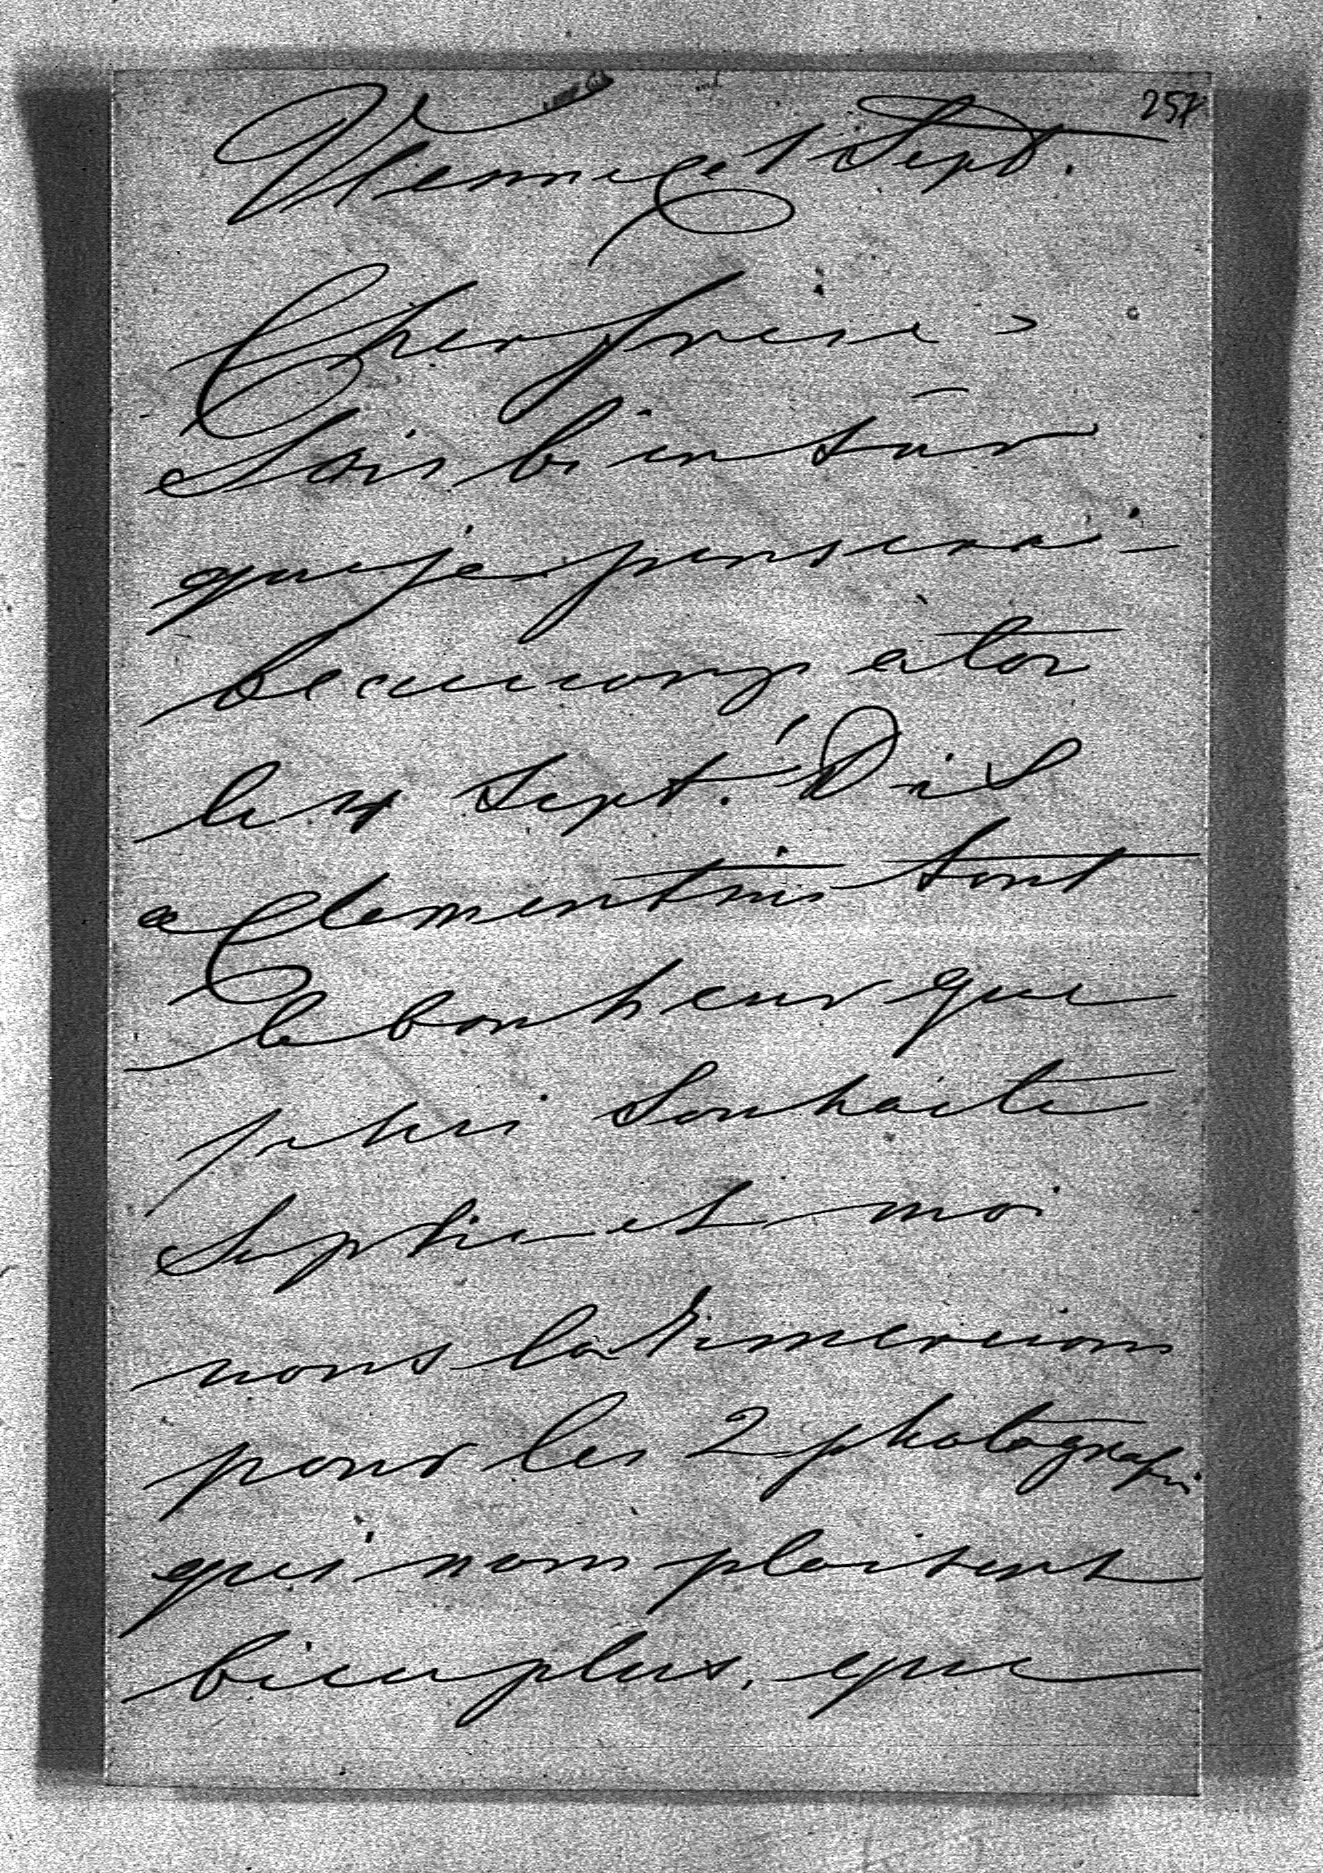 257
Vienne ce 1 Sept.
Cher frère,
Sois bien sûr
que je penserai
beaucoup à toi
le 4 Sept. ! Dis
a Clementine tout
le bonheur que
je lui souhaite
Sophie et moi
nous la remercions
pour les 2 photografi
qui nous plaisent
bien plus, que